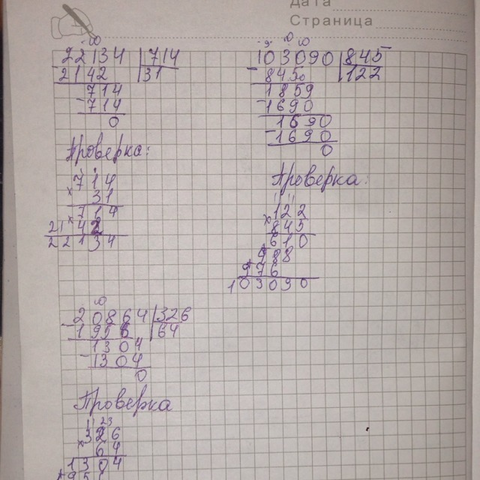 Дата
Страница
22134 | 714
2142 | 31
714
714
0
Проверка:
714
× 31
714
2142
22134
103090 | 845
845 | 122
1859
1690
1690
1690
0
Проверка:
× 122
845
610
488
976
103090
20864 | 326
1956 | 64
1304
1304
0
Проверка
326
× 64
1304